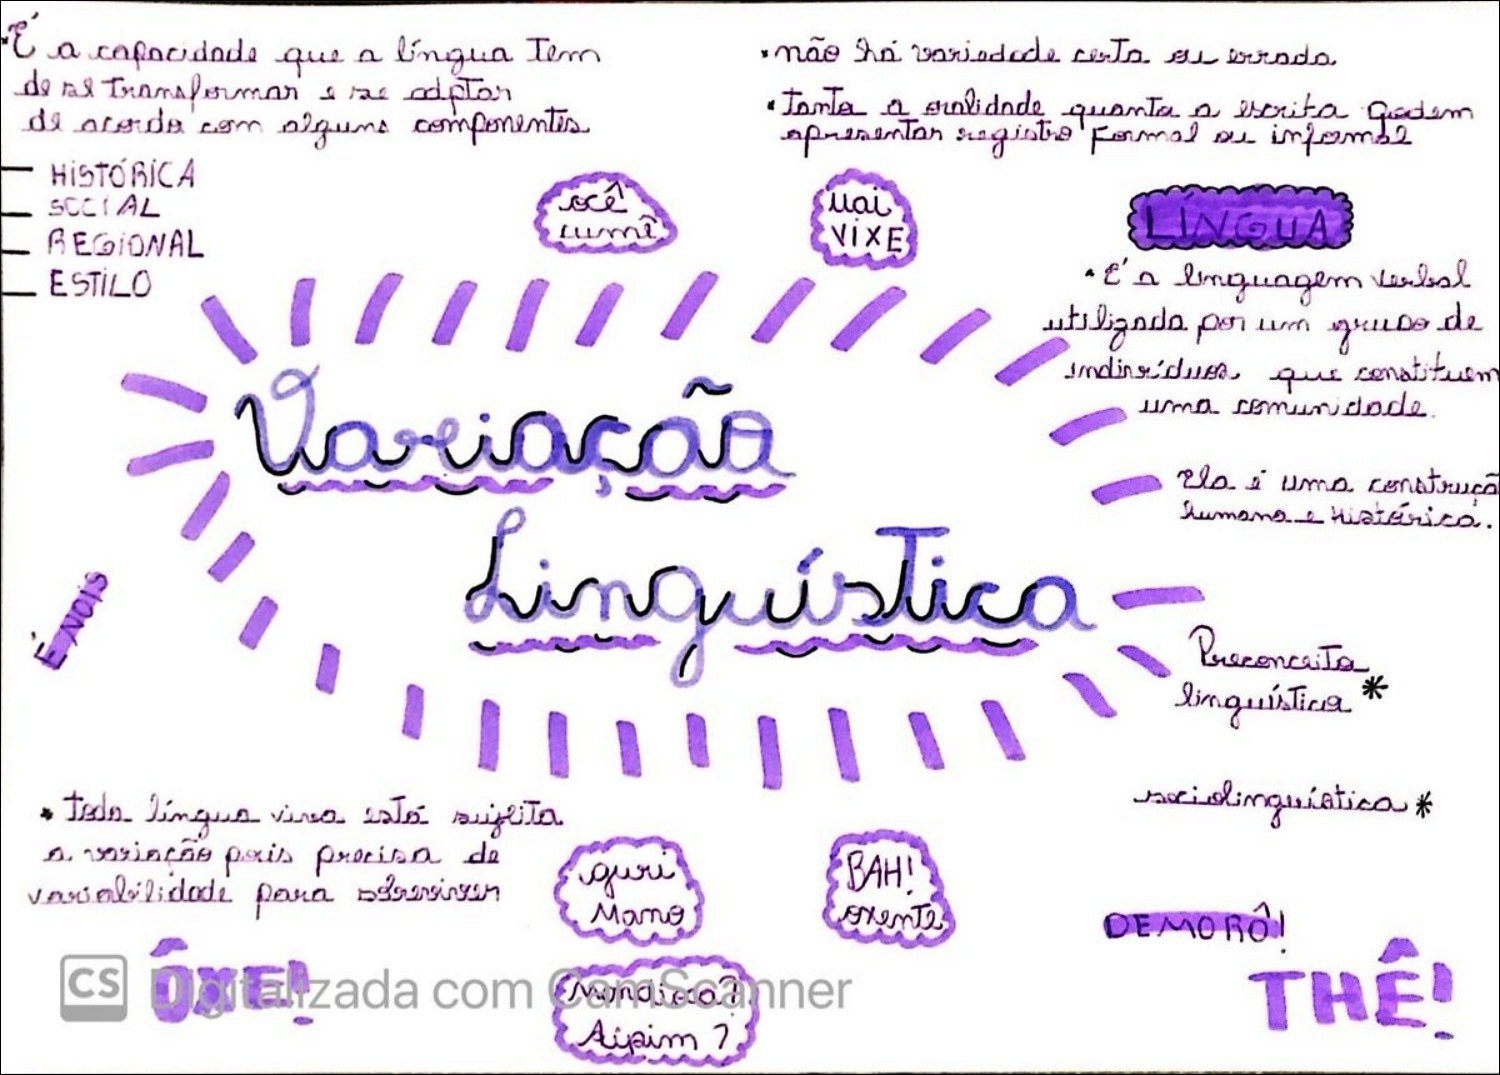 É a capacidade que a língua tem
de se transformar e se adptar
de acordo com alguns componentes
HISTÓRICA
SOCIAL
REGIONAL
ESTILO
• não há variedade certa ou errada
• tanto a oralidade quanto a escrita podem
apresentar registro formal ou informal
ocê
cumê
uai
VIXE
LÍNGUA
• É a linguagem verbal
utilizada por um grupo de
indivíduos que constituem
uma comunidade.
Ela é uma construçã
humana e histórica.
Variação
Linguística
É nois
Preconceito
linguístico *
sociolinguística *
• toda língua viva está sujeita
a variação pois precisa de
variabilidade para sobreviver
guri
Mano
BAH!
oxente
DEMORÔ!
ÔXE!
THÊ!
Mandioca?
Aipim?
CS Digitalizada com CamScanner